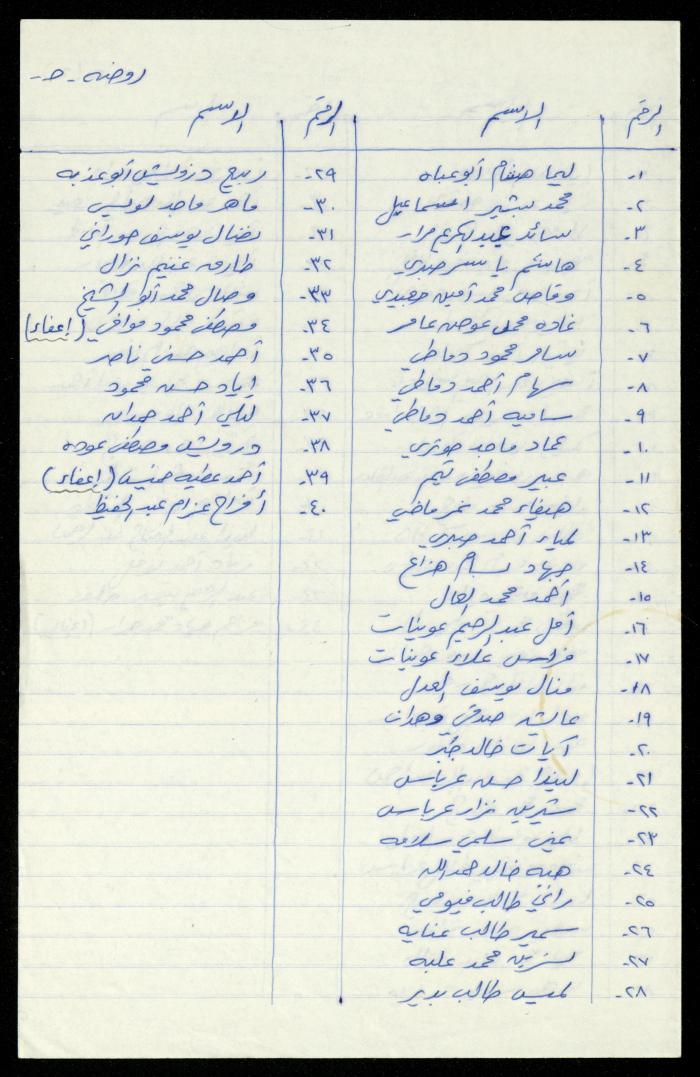 روضه - د -
الرقم الاسم
١- ليما هشام أبو عباه
٢- محمد بشير اسماعيل
٣- سائد عبد الكريم مرار
٤- هاشم ياسر صبري
٥- وقاص محمد أمين
٦- غاده محمد عوض عامر
٧- سامر محمود دماطي
٨- سهام أحمد دماطي
٩- ساميه أحمد دماطي
١٠- عماد ماجد جوتري
١١- عبير مصطفى تيم
١٢- هيفاء محمد نمر ماضي
١٣- لمياء أحمد صبري
١٤- جهاد بسام هزاع
١٥- أحمد محمد العال
١٦- أمل عبد الرحيم عوينات
١٧- فراس علاء عوينات
١٨- منال يوسف العدل
١٩- عائشه صدقي وهدان
٢٠- آيات خالد جبر
٢١- ليندا حسن عرباس
٢٢- شيرين نزار عرباس
٢٣- سلمي سلامه
٢٤- هبه خالد حمدالله
٢٥- راني طالب فيومي
٢٦- سمير طالب عنايه
٢٧- نسرين محمد علبه
٢٨- لميس طالب بدير
الرقم الاسم
٢٩- ربيع درويش أبو عذبه
٣٠- ماهر ماجد لويسي
٣١- نضال يوسف حوراني
٣٢- طارق غنيم نزال
٣٣- وصال محمد أبو الشيخ
٣٤- مصطفى محمود موافي (إعفاء)
٣٥- أحمد حسني ناصر
٣٦- إياد حسن محمود
٣٧- ليلى أحمد حمدان
٣٨- درويش مصطفى عوده
٣٩- أحمد عطيه حنيني (إعفاء)
٤٠- أفراح عزام عبد الحفيظ